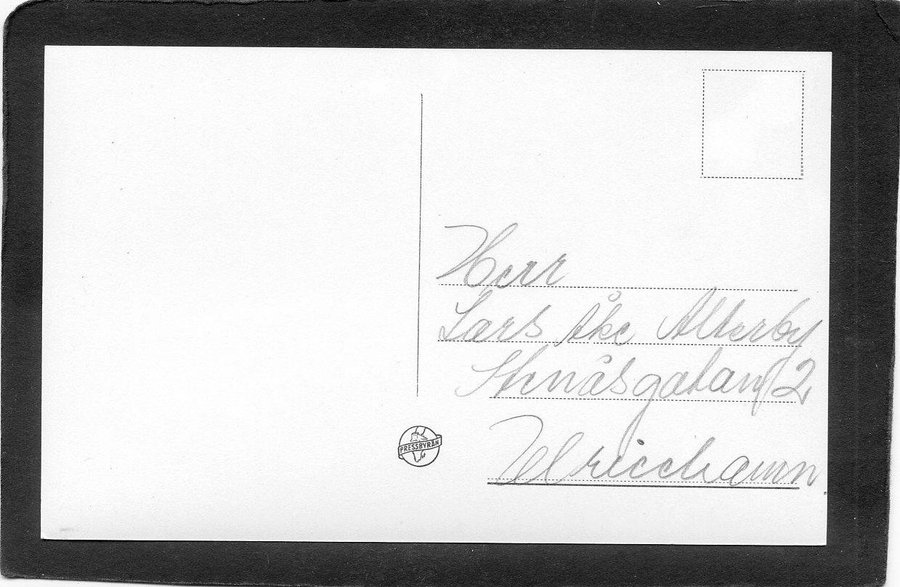 Herr
Lars Åke Alterby
Stenåsgatan 2
Ulricehamn
PRESSBYRÅN